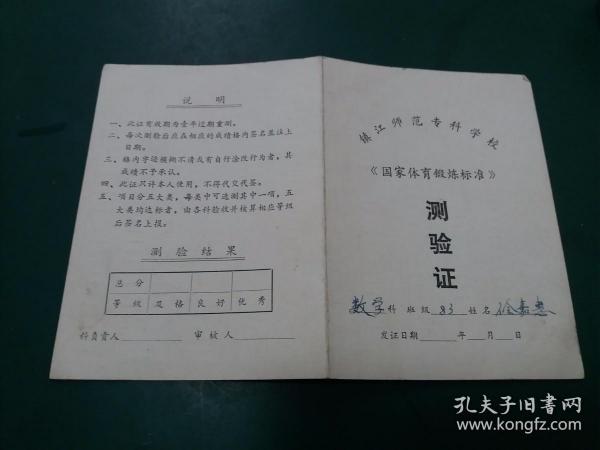 说明
一、此证有效期为壹年过期重测。
二、每次测验后应在相应的成绩格内签名并注上
日期。
三、格内字迹模糊不清或有自行涂改行为者，其
成绩不予承认。
四、此证只许本人使用，不得代交代签。
五、项目分五大类，每类中可选测其中一项，五
大类均达标者，由各科验收并核算相应等级
后签名上报。
测验结果
总分
等级 及格 良好 优秀
科负责人 审核人
镇江师范专科学校
《国家体育锻炼标准》
测
验
证
数学科 班级 83 姓名 徐
发证日期 年 月 日
孔夫子旧书网
www.kongfz.com